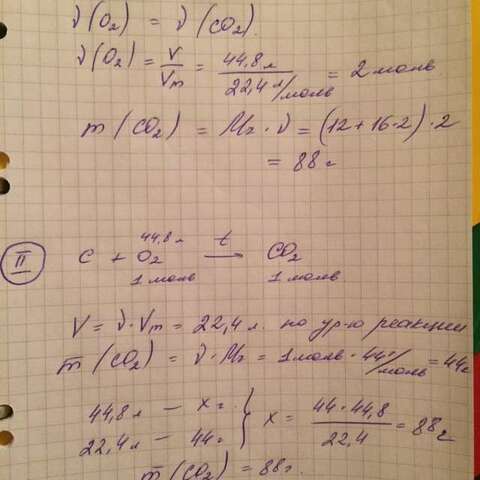 ν(O₂) = ν(CO₂).
ν(O₂) = V/Vm = 44,8 л / 22,4 л/моль = 2 моль
m(CO₂) = Mr · ν = (12 + 16·2) · 2
= 88 г
II
44,8 л
C + O₂ —t→ CO₂
1 моль 1 моль
V = ν · Vm = 22,4 л. по ур-ю реакции
m(CO₂) = ν · Mr = 1 моль · 44 г/моль = 44 г
44,8 л — x г.
22,4 л — 44 г } x = 44 · 44,8 / 22,4 = 88 г
m(CO₂) = 88 г.